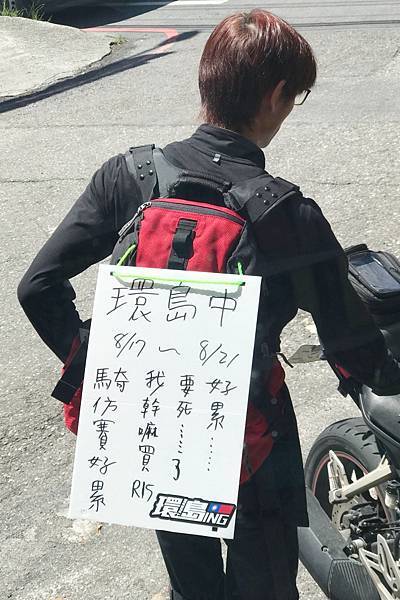 環島中
8/17 ~ 8/21
好累……
要死……了
我幹嘛買R15
騎仿賽好累
環島ING